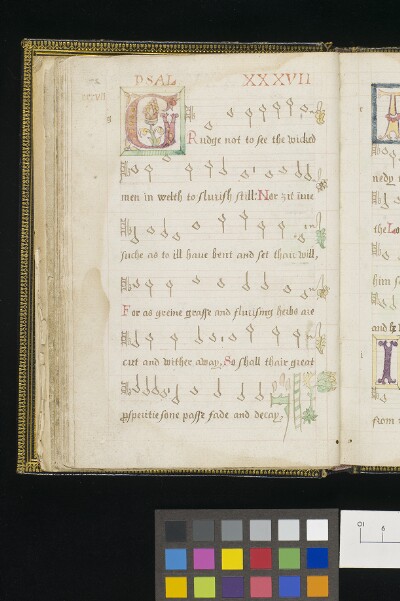 PSAL XXXVII
GRudge not to see the wicked
men in welth to flurish still: Nor zit inue
suche as to ill haue bent and set thair will,
For as greine grasse and flurising herbs are
cut and wither away, So shall thair great
psperitie sone passe fade and decay.
nedy
the Lo
him
and
I
from